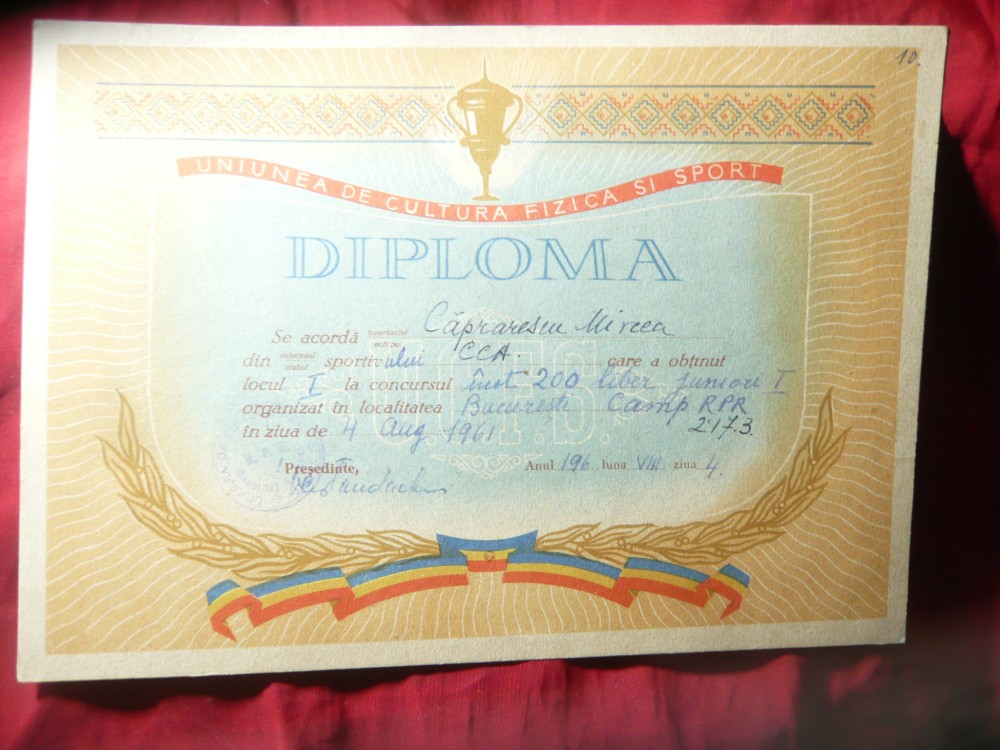 10.
UNIUNEA DE CULTURA FIZICA SI SPORT
DIPLOMA
Se acordă Căprarescu Mircea
din sportivului CCA. care a obținut
locul I la concursul înot 200 liber juniori I
organizat în localitatea București Camp RPR
în ziua de 4 Aug 1961 2.17.3.
Președinte, Anul 196 luna VIII ziua 4.